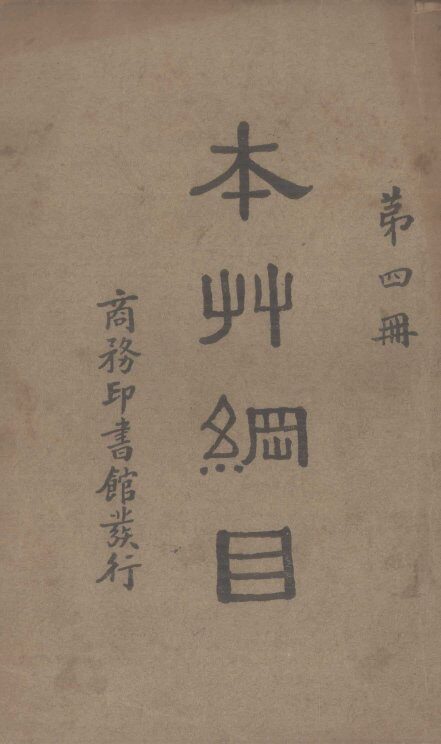 第四冊
本艸綱目
商務印書館發行